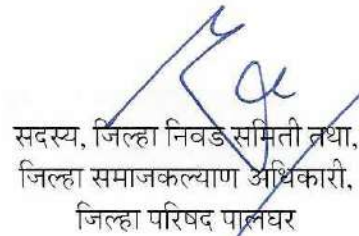 सदस्य, जिल्हा निवड समिती तथा,
जिल्हा समाजकल्याण अधिकारी,
जिल्हा परिषद पालघर